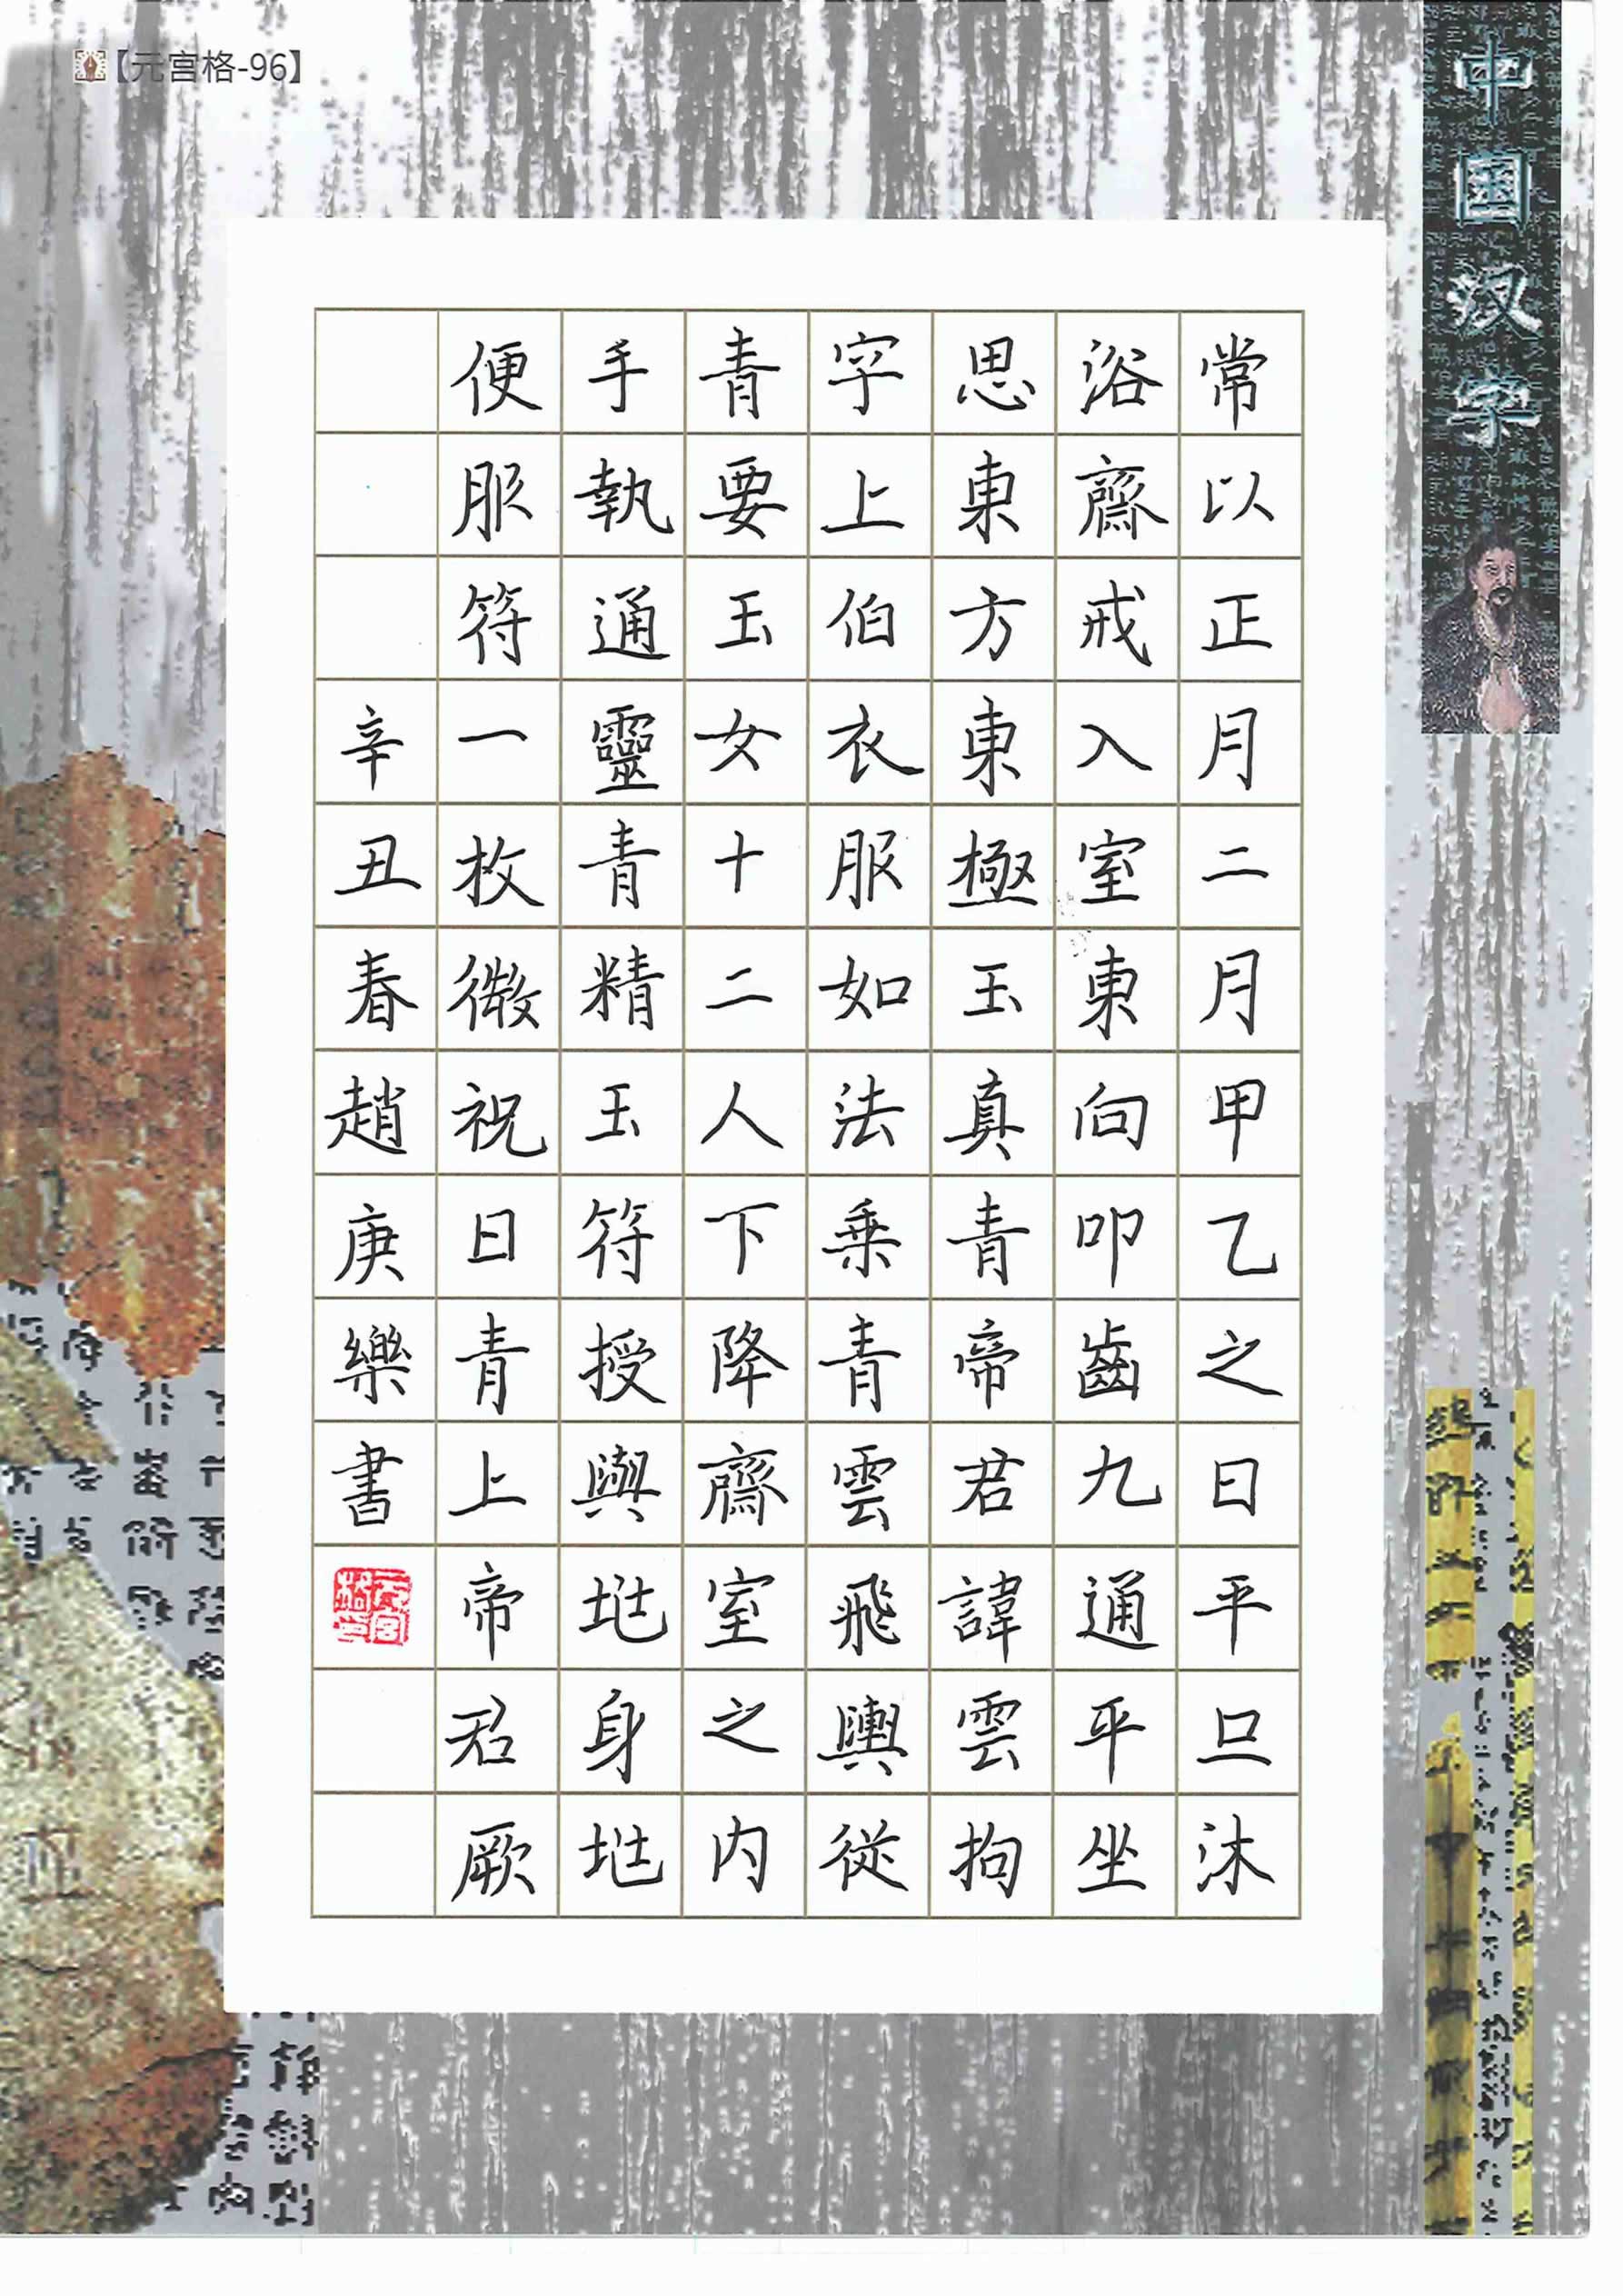 【元宫格-96】
中国汉字
常以正月二月甲乙之日平旦沐
浴齋戒入室東向叩齒九通平坐
思東方東極玉真青帝君諱雲拘
字上伯衣服如法乗青雲飛輿從
青要玉女十二人下降齋室之内
手執通靈青精玉符授與地身地
便服符一枚微祝日青上帝君厥
辛丑春趙庚樂書